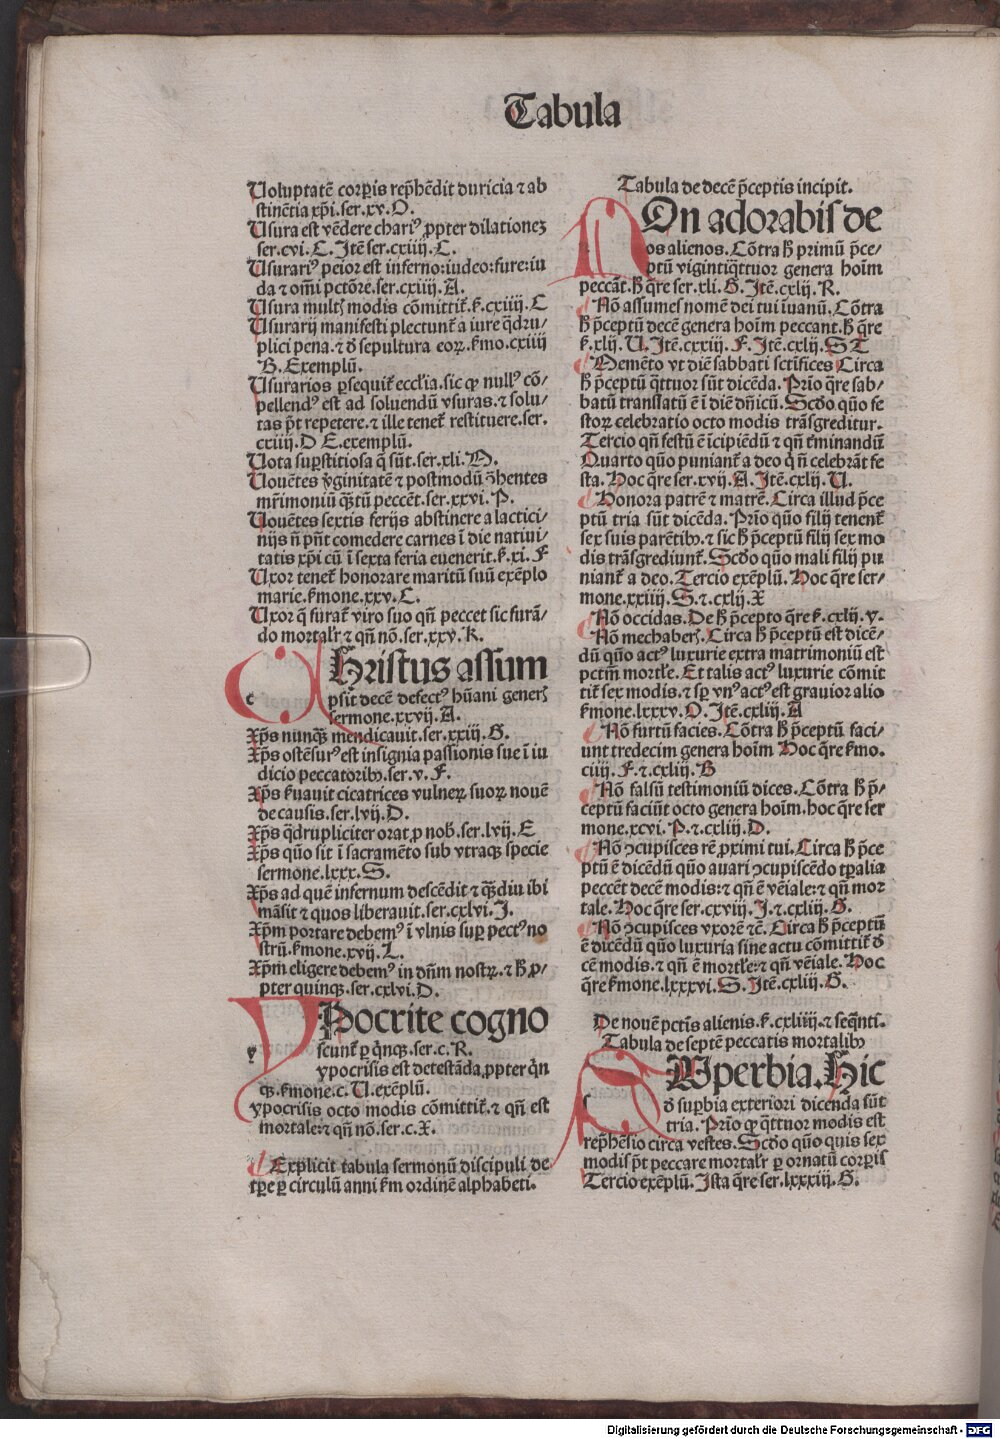 Tabula
Uoluptatē corꝑis rep̄hēdit duricia ⁊ ab
stinētia xp̄i.ser.xv.O.
Usura est vēdere chariꝰ ꝓpter dilationeꝫ
ser.cvi.C.Itē ser.cxiiij.C.
Usurariꝰ peior est inferno:iudeo:fure:iu
da ⁊ oīm pctōre.ser.cxiiij.A.
Usura multꝭ modis cōmittit᷑.ẜ.cxiiij.C
Usurarij manifesti plectunt᷑ a iure q̄dru/
plici pena.⁊ ð sepultura eoꝝ.ẜmo.cxiiij
B.Exemplū.
Usurarios ꝑsequit᷑ eccl'ia.sic ꝙ nullꝰ cō/
pellendꝰ est ad soluendū vsuras.⁊ solu/
tas p̄t repetere.⁊ ille tenet᷑ restituere.ser.
cxiiij.D E.exemplū.
Uota suꝑstitiosa q̄ sūt.ser.xli.N.
Uouētes v̄ginitatē ⁊ postmodū ꝯ̄hentes
mr̄imoniū q̄ꝫtū peccēt.ser.xxvi.P.
Uouētes sextis ferijs abstinere a lactici/
nijs n̄ pn̄t comedere carnes ī die natiui/
tatis xp̄i cū ī sexta feria euenerit.ẜ.xi.F
Uxor tenet᷑ honorare maritū suū exēplo
marie.ẜmone.xxv.C.
Uxor q̄ furat᷑ viro suo qn̄ peccet sic furā/
do mortal'r ⁊ qn̄ nō.ser.xxv.K.
c
Hristus assum
psit decē defectꝰ hūani generꝭ
sermone.xxvij.A.
Xp̄s nunq̄ꝫ mendicauit.ser.xxiij.G.
Xp̄s ostēsurꝰ est insignia passionis sue ī iu
dicio peccatoribꝫ.ser.v.F.
Xp̄s ẜuauit cicatrices vulneꝝ suoꝝ nouē
de causis.ser.lvij.D.
Xp̄s q̄drupliciter orat ꝓ nob̄.ser.lvij.E
Xp̄s quō sit ī sacramēto sub vtraqꝫ specie
sermone.lxxx.S.
Xp̄s ad quē infernum descēdit ⁊ q̄ꝫdiu ibi
māsit ⁊ quos liberauit.ser.cxlvi.I.
Xp̄m portare debemꝰ ī vlnis suꝑ pectꝰ no
strū.ẜmone.xvij.L.
Xp̄m eligere debemꝰ in dn̄m nostꝝ.⁊ ꝧ ꝓ/
pter quinqꝫ.ser.cxlvi.D.
y
Pocrite cogno
scunt᷑ ꝑ q̄nqꝫ.ser.c.R.
ypocrisis est detestāda.ꝓpter q̄n
qꝫ.ẜmone.c.U.exēplū.
ypocrisis octo modis cōmittit᷑.⁊ qn̄ est
mortale:⁊ qn̄ nō.ser.c.X.
Explicit tabula sermonū discipuli de
tꝑe ꝑ circulū anni ẜm ordinē alphabeti.
Tabula de decē p̄ceptis incipit.
On adorabis de
os alienos.Cōtra ꝧ primū p̄ce/
ptū vigintiq̄ttuor genera hoīm
peccāt.ꝧ q̄re ser.xli.G.Itē.cxlij.R.
Nō assumes nomē dei tui ī vanū.Cōtra
ꝧ p̄ceptū decē genera hoīm peccant.ꝧ q̄re
ẜ.xlij.U.Itē.cxxiij.F.Itē.cxlij.ST
Memēto vt diē sabbati sctīfices Circa
ꝧ p̄ceptū q̄ttuor sūt dicēda.Prīo q̄re sab/
batū translatū ē ī diē dn̄icū.Scdo quō fe
stoꝝ celebratio octo modis trāsgreditur.
Tercio qn̄ festū ē īcipiēdū ⁊ qn̄ t᷑minandū
Quarto quō puniant᷑ a deo q̄ n̄ celebrāt fe
sta.Hoc q̄re ser.xvij.A.Itē.cxlij.U.
Honora patrē ⁊ matrē.Circa illud p̄ce
ptū tria sūt dicēda.Prīo quō filij tenent᷑
sex suis parētibꝫ.⁊ sic ꝧ p̄ceptū filij sex mo
dis trāsgrediunt᷑.Scdo quō mali filij pu
niant᷑ a deo.Tercio exēplū.Hoc q̄re ser/
mone.xxiiij.S.⁊.cxlij.X
Nō occidas.De ꝧ p̄cepto q̄re ẜ.cxlij.y.
Nō mechaberꝭ.Circa ꝧ p̄ceptū est dicē/
dū quō actꝰ luxurie extra matrimoniū est
pctm̄ mortl'e.Et talis actꝰ luxurie cōmit
tit᷑ sex modis.⁊ sꝑ vnꝰ actꝰ est grauior alio
ẜmone.lxxxv.O.Itē.cxliij.A
Nō furtū facies.Cōtra ꝧ p̄ceptū faci/
unt tredecim genera hoīm Hoc q̄re ẜmo.
ciiij.F.⁊.cxliij.B
Nō falsū testimoniū dices.Cōtra ꝧ p̄/
ceptū faciūt octo genera hoīm.hoc q̄re ser
mone.xcvi.P.⁊.cxliij.D.
Nō ꝯcupisces rē ꝓximi tui.Circa ꝧ p̄ce
ptū ē dicēdū quō auari ꝯcupiscēdo tꝑalia
peccēt decē modis:⁊ qn̄ ē vēiale:⁊ qn̄ mor
tale.Hoc q̄re ser.cxviij.I.⁊.cxliij.G.
Nō ꝯcupisces vxorē ⁊c̄.Circa ꝧ p̄ceptū
ē dicēdū quō luxuria sine actu cōmittit᷑ ð
cē modis.⁊ qn̄ ē mortl'e:⁊ qn̄ vēiale.Hoc
q̄re ẜmone.lxxxvi.S.Itē.cxliij.G.
De nouē pctīs alienis.ẜ.cxliiij.⁊ seq̄nti.
Tabula de septē peccatis mortalibꝫ
Uperbia.Hic
ð suꝑbia exteriori dicenda sūt
tria.Prīo ꝙ q̄ttuor modis est
rep̄hēsio circa vestes.Scdo quō quis sex
modis p̄t peccare mortal'r ꝑ ornatū corꝑis
Tercio exēplū.Ista q̄re ser.lxxxiij.G.
Digitalisierung gefördert durch die Deutsche Forschungsgemeinschaft - DFG